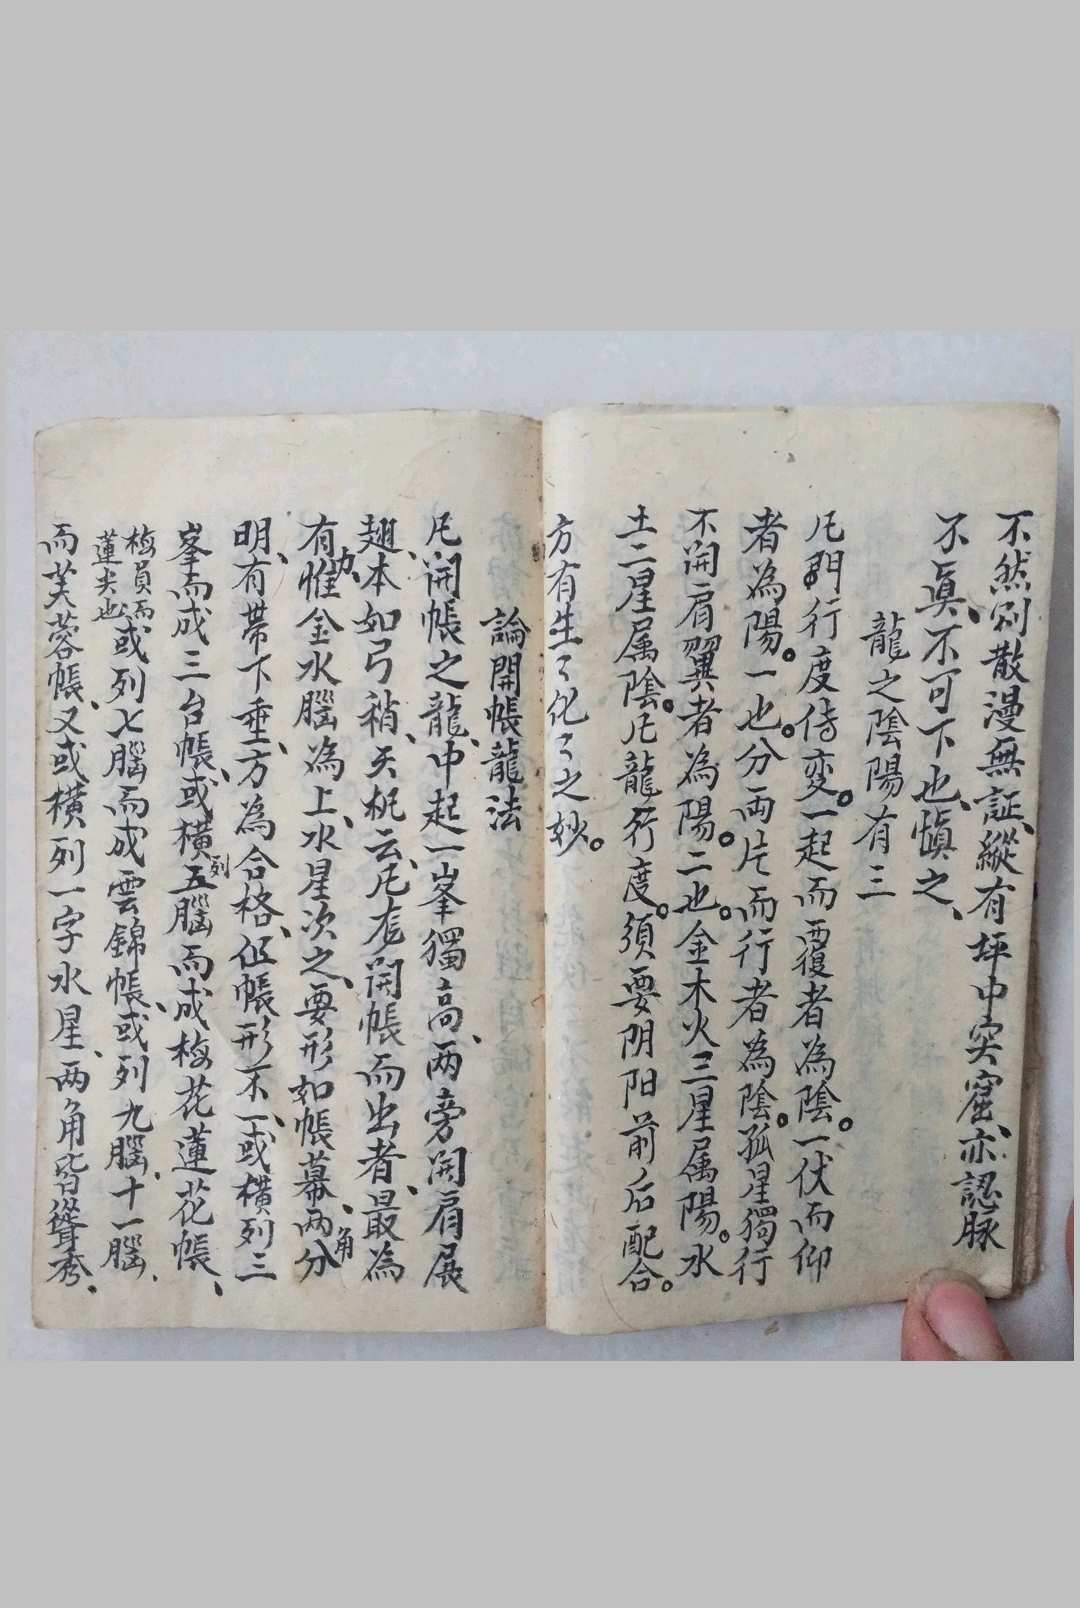 不然则散漫無証、縱有坪中突窟、亦認脉
不真、不可下也、慎之、
龍之陰陽有三
凡門行度傳变。一起而覆者為陰。一伏而仰
者為陽。一也。分両片而行者為陰。孤星獨行
不開肩翼者為陽。二也。金木火三星属陽。水
土二星属陰。凡龍行度。須要阴阳前后配合。
方有生〻化〻之妙。
論開帳龍法
凡開帳之龍、中起一峯獨高、两旁開肩展
翅、本如弓稍、天机云、凡龙開帳而出者、最為
有力、惟金水腦為上、水星次之、要形如帳幕、两角分
明、有帶下垂、方為合格、但帳形不一、或横列三
峯而成三台帳、或横列五腦而成梅花蓮花帳、
梅員而
蓮尖也
或列七腦而成雲錦帳、或列九腦、十一腦、
而芙蓉帳、又或横列一字水星、两角皆聳秀、